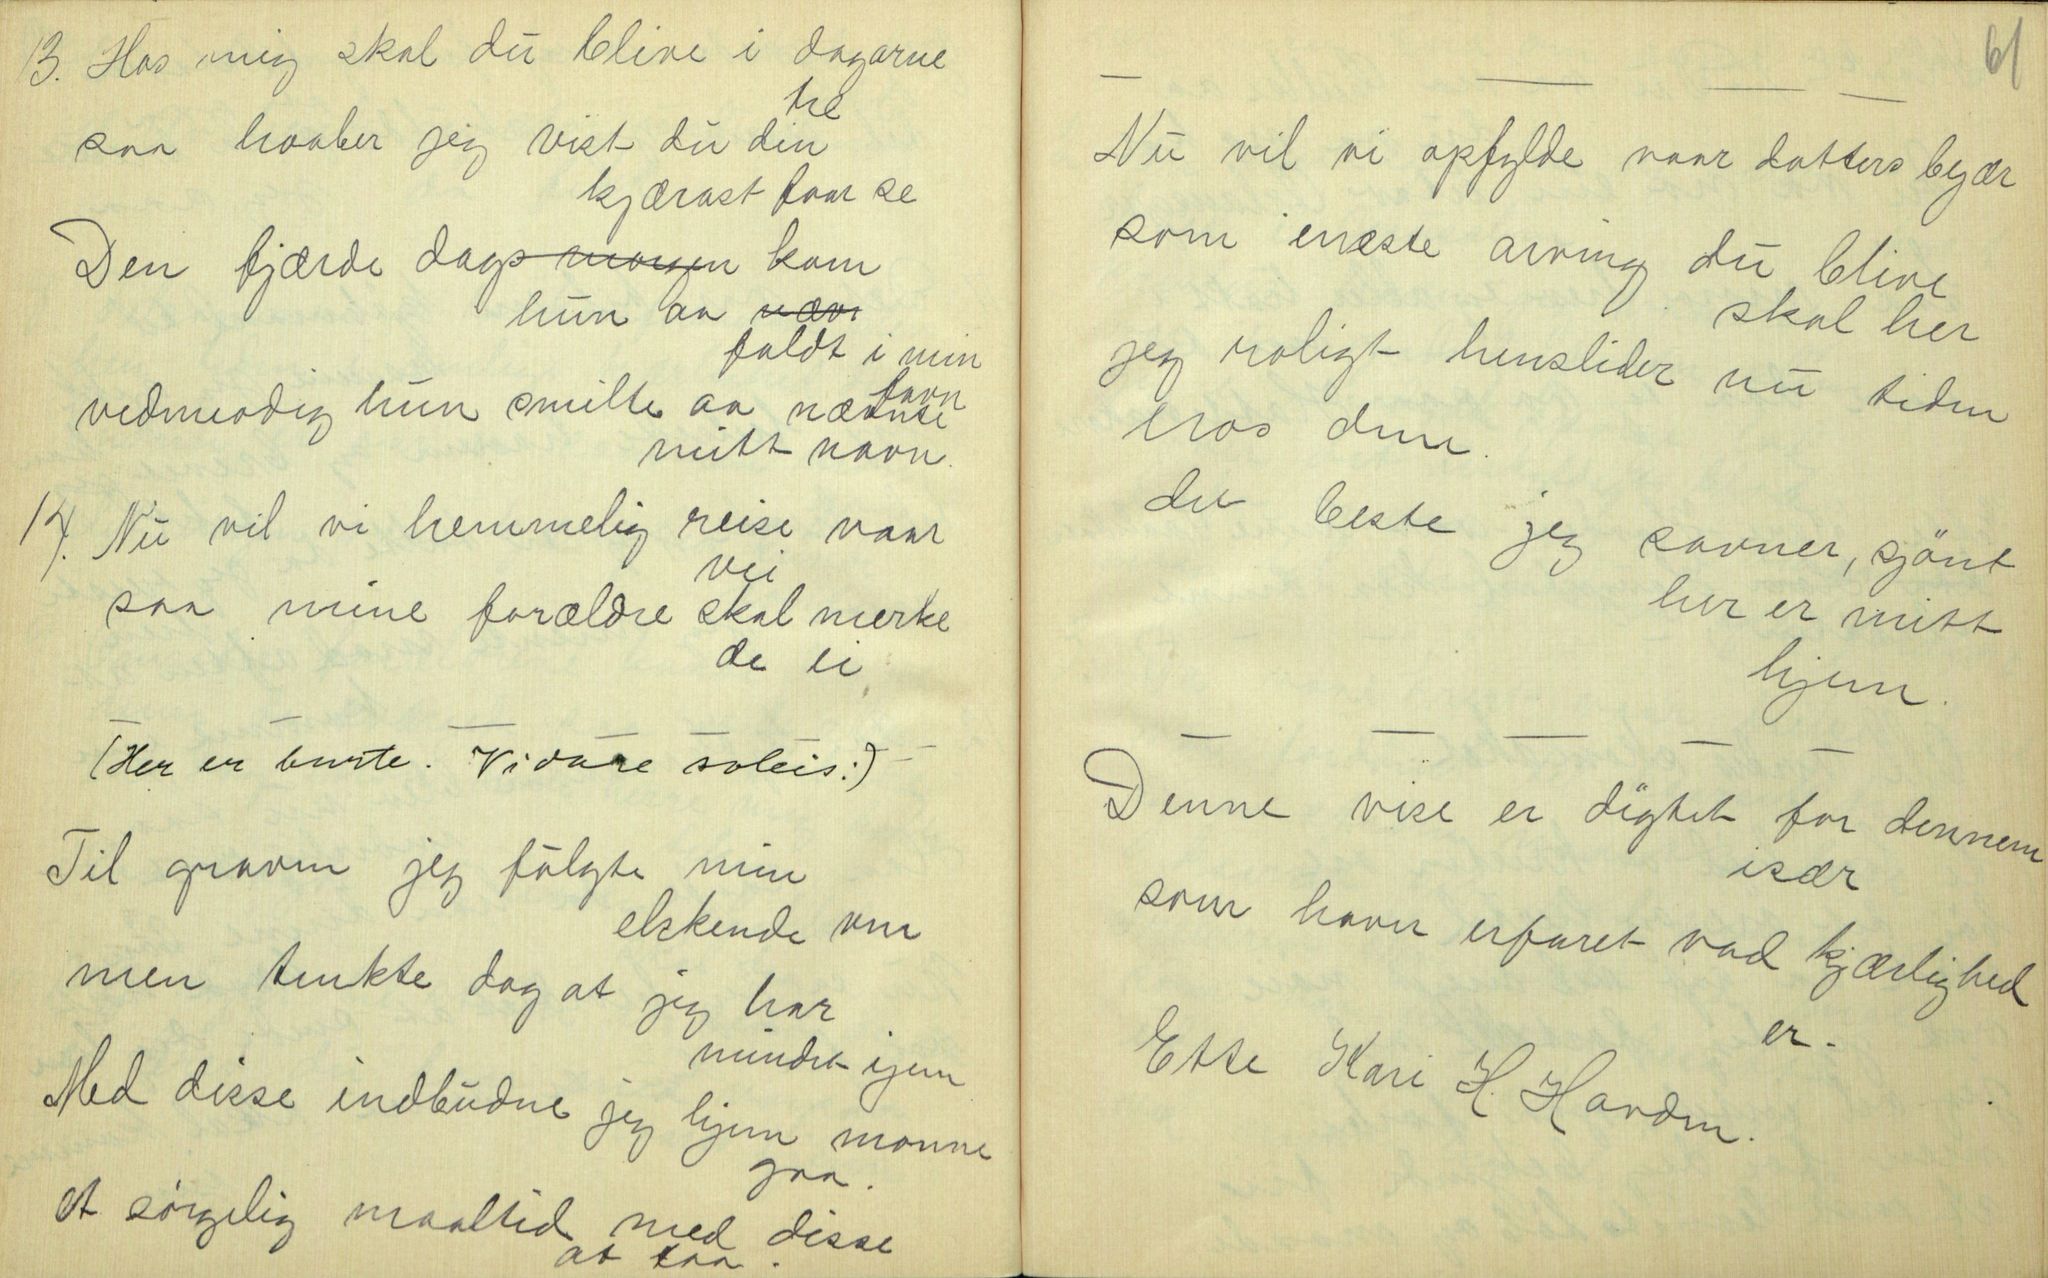 13. Hos mig skal du blive i dagarne
tre
saa haaber jeg vist du din
kjærast faar se
Den fjærde dags morgen kom
hun aa nævn
faldt i min
favn
vedmeodig hun smilte aa nævnte
mitt navn.
14. Nu vil vi hemmelig reise vaar
vei
saa mine forældre skal merke
de ei
(Her er burte. Vidare soleis:)
Til graven jeg fölgte min
elskende ven
men tenkte dog at jeg har
mindet igjen
Med disse indbudne jeg hjem monne
gaa.
et sörgelig maaltid med disse
at taa.
61
Nu vil vi opfylde vaar datters begjær
som eneste arving du blive
skal her
jeg roligt henslider nu tiden
hos dem.
det beste jeg savner, sjönt
her er mitt
hjem.
Denne vise er digtet for dennem
især
som haver erfaret vad kjærlighed
er.
Ette Kari H. Harden.